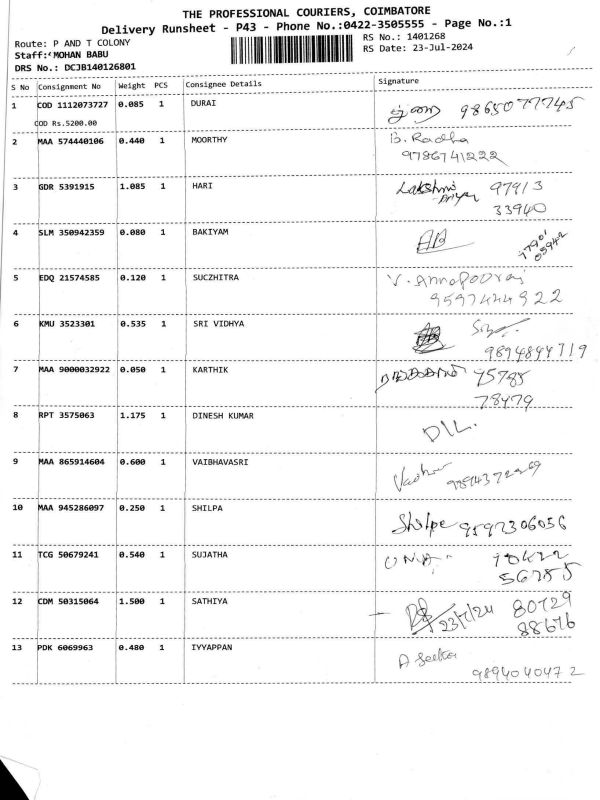 THE PROFESSIONAL COURIERS, COIMBATORE
Delivery Runsheet - P43 - Phone No.:0422-3505555 - Page No.:1
Route: P AND T COLONY
RS No.: 1401268
Staff: MOHAN BABU
RS Date: 23-Jul-2024
DRS No.: DCJB140126801
S No Consignment No Weight PCS Consignee Details Signature
1 COD 1112073727 0.085 1 DURAI 9865077745
COD Rs.5200.00
2 MAA 574440106 0.440 1 MOORTHY B. Radha
9786741222
3 GDR 5391915 1.085 1 HARI Lakshmi 97913
Priya 33940
4 SLM 350942359 0.080 1 BAKIYAM
5 EDQ 21574585 0.120 1 SUCZHITRA V. Annapoorani
9597444922
6 KMU 3523301 0.535 1 SRI VIDHYA
9894844719
7 MAA 9000032922 0.050 1 KARTHIK
78479
8 RPT 3575063 1.175 1 DINESH KUMAR DIL.
9 MAA 865914604 0.600 1 VAIBHAVASRI
10 MAA 945286097 0.250 1 SHILPA Shilpe 9597306056
11 TCG 50679241 0.540 1 SUJATHA
12 CDM 50315064 1.500 1 SATHIYA 23/7/24 80729
88676
13 PDK 6069963 0.480 1 IYYAPPAN
9894040472